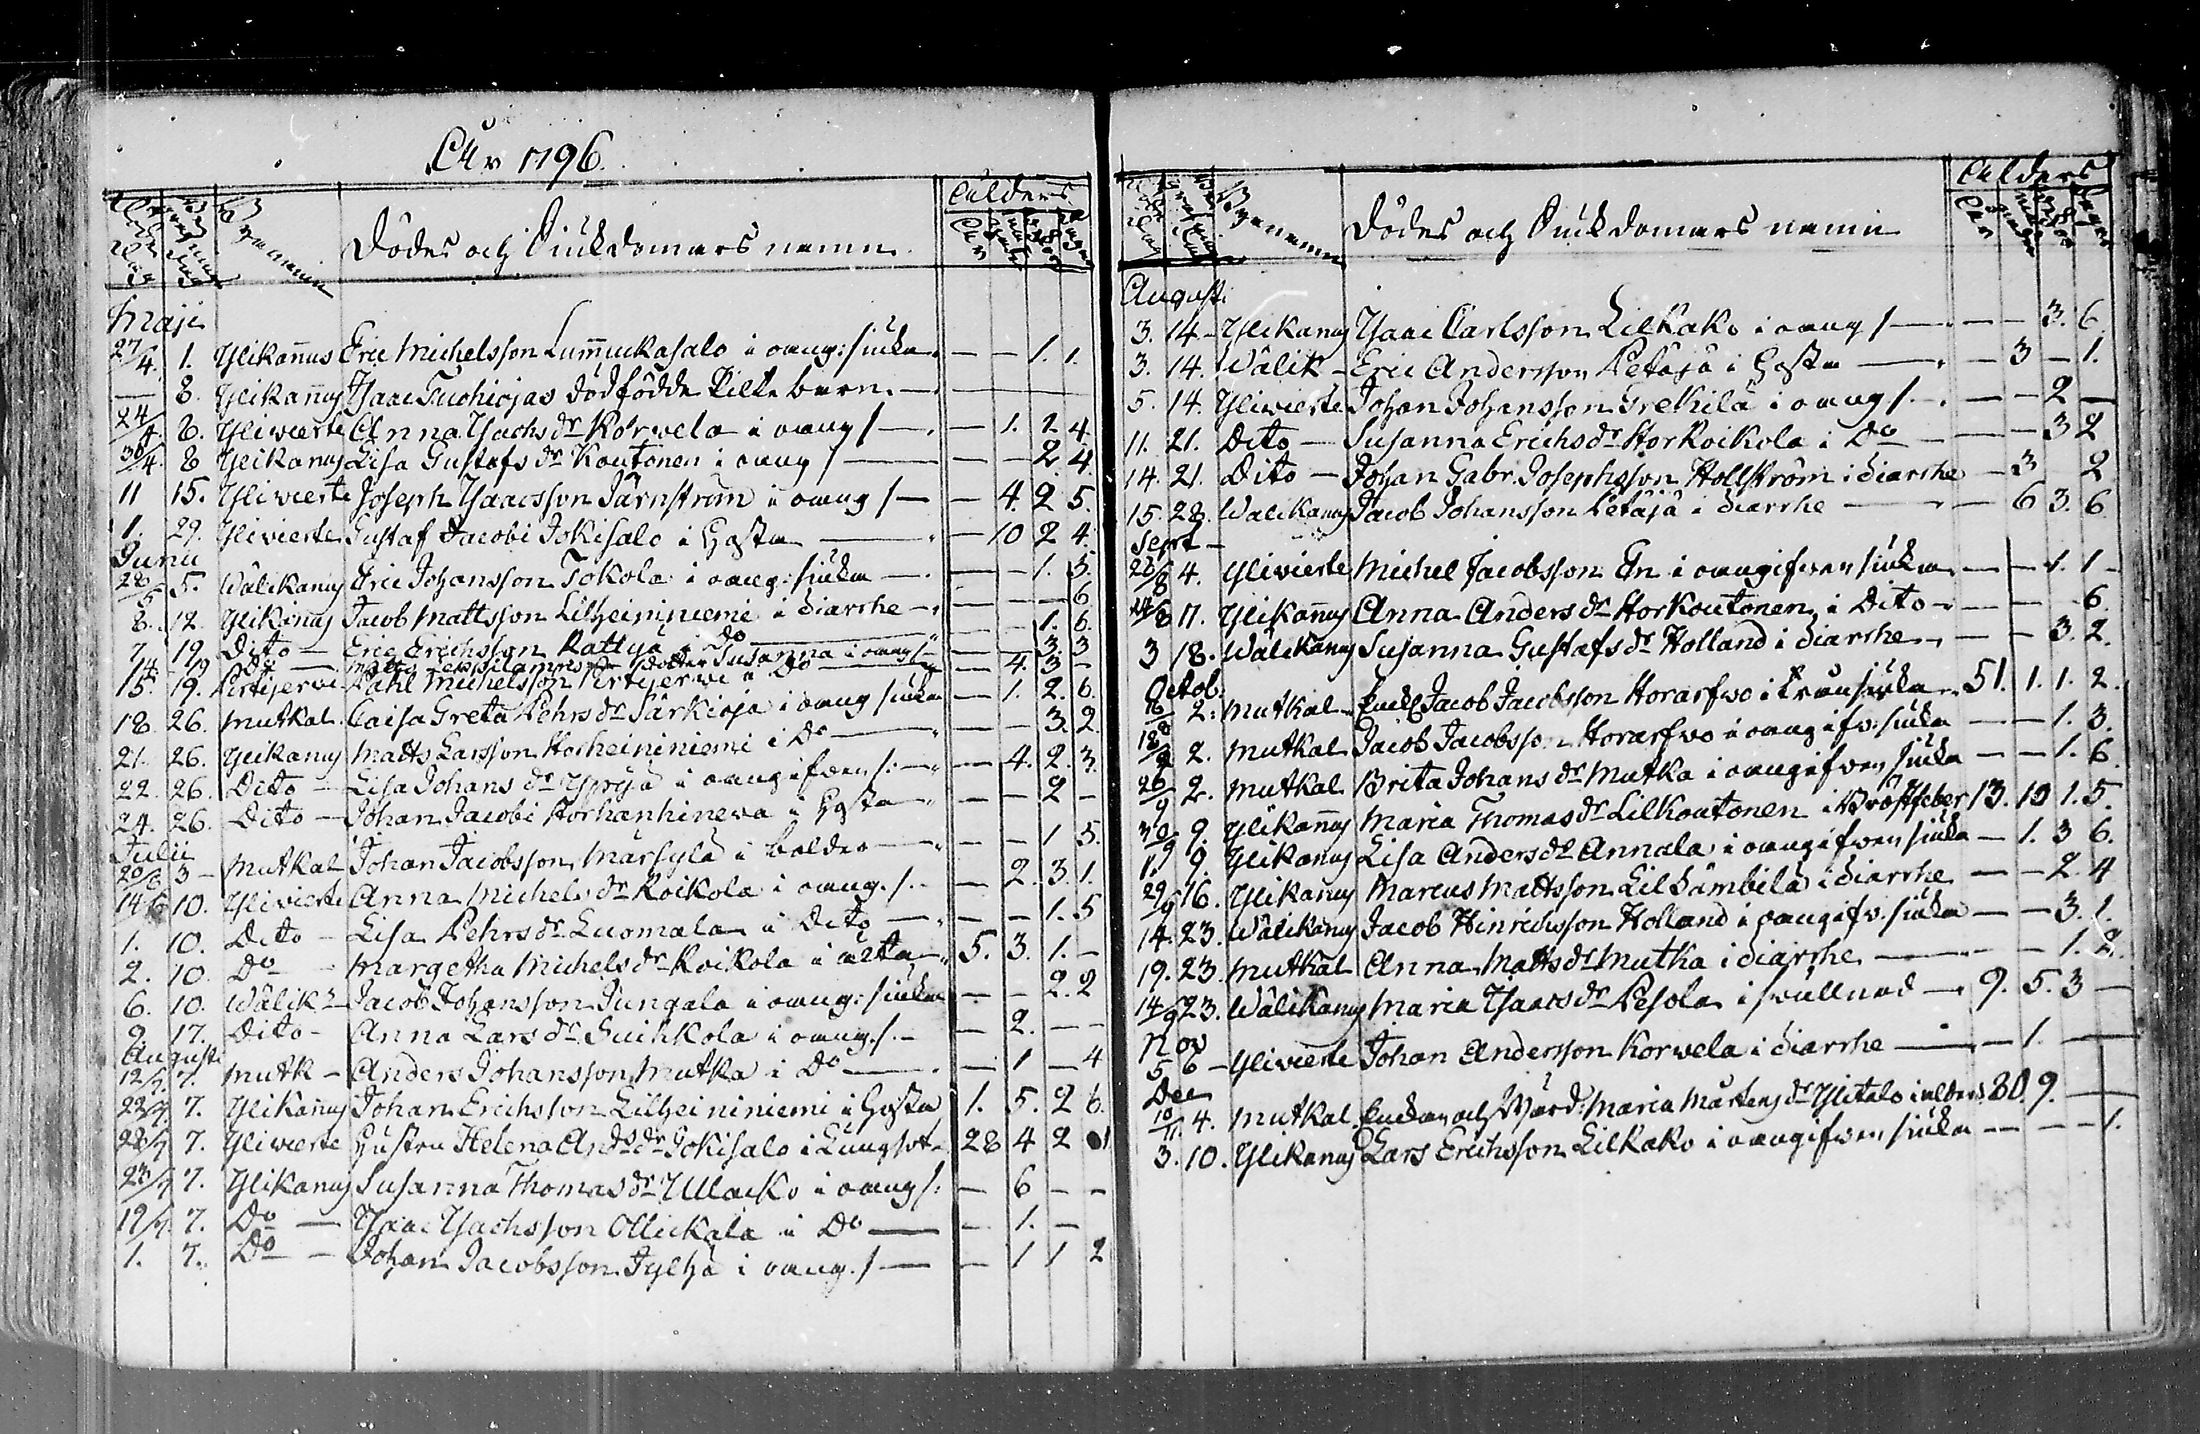 År 1796.
Ålders
Byenamn Dödes och Siukdomars namn År månader Dagar
Maji
27/4. 1. Ylikañus Eric Michelsson Lum̄uckasalo i oang: siuka. — — 1. 1.
— 8. Ylikañus Isaac Tuohiojas dödfödde Piltebarn. —
24/4 8. Ylivierte Anna Isachs dr Korwela i oang/ — . — 1. 2. 4.
30/4. 8 Ylikanus Lisa Gustafs dr Koutonen i oang/ — — — 2. 4.
11 15. Ylivierte Joseph Isaacsson Järnström i oang/ — — 4. 2 5.
1. 29. Ylivierte Gustaf Jacobi Jokisalo i Hosta — — 10 2 4.
Junii
28/5 5. Wälikanus Eric Johansson Tokola i oang: siuka — — — 1. 5.
8. 12. Ylikanus Jacob Mattsson Lilheininiemi i diarrhe — — — — 6
7. 19. Dito — Eric Erichsson Rattyä i Do — — — 1. 6.
14. 19 Do — Matts dotter Susanna i oang/ — — 3. 3
15. 19. Pirttijerwi Påhl Michelsson Pirttijerwi i Do — 4. 3 —
18. 26. Mutkal. Caisa Greta Pehrs dr Särkioja i oang siuka — 1. 2. 6.
21. 26. Ylikanus Matts Larsson Storheininiemi i Do — — — 3. 2.
22. 26. Dito — Lisa Johans dr Ypyä i oangifwen/: — 4. 2. 3.
24. 26. Dito — Johan Jacobi Storhanhinewa i Hosta — — 2 —
Julii
20/6 3 — Mutkal Johan Jacobsson Marsylä i bolder — — — 1 5.
14/6 10. Ylivierte Anna Michels dr Roikola i oang./. — — 2. 3. 1.
1. 10. Dito — Lisa Pehrs dr Luomala i Dito — — — 1. 5
2. 10. Do — Margetha Michels dr Roikola i älta 5. 3. 1. —
6. 10. Wälik: — Jacob Johansson Jungala i oang: siuka — — 2. 2
9. 17. Dito — Anna Lars dr Huihkola i oang/. — — 2. — —
Augusti
12/7. 7. Mutk — Anders Johansson Mutka i Do — — 1 — 4
22/7. 7. Ylikañus Johan Erichsson Lilheininiemi i Hosta 1. 5. 2 6.
28/7 7. Ylivierte Hustru Helena Ands dr Jokisalo i Lungsot — 28 4 2 1
23/7 7. Ylikanus Susanna Thomas dr Ullacko i oang/: — 6 — —
19/7. 7. Do — Isaac Isachsson Ollickala i Do — — 1. —
1. 7. Do — Johan Jacobsson Jylhä i oang./ — — 1 1 2
Ålders
Byenamn Dödes och Siukdomars namn År månader Dagar
Augusti
3. 14 — Ylikanus Isaac Carlsson Lilkako i oang/ — — — 3. 6.
3. 14. Wälik — Eric Andersson Petäjä i Hosta — — 3 — 1.
5. 14. Ylivierte Johan Johansson Grekilä i oang/. — — 2 —
11. 21. Dito — Susanna Erichs dr StorRoikola i Do — — — 3 2
14. 21. Dito — Johan Gabr. Josephsson Hollström i diarrhe — 3 2
15. 28. Wälikanus Jacob Johansson Petäjä i diarrhe — — 6 3. 6
Sept —
22/8 4. Ylivierte Michel Jacobsson En i oangifwen siuka — — 1. 1 —
24/8 11. Ylikañus Anna Anders dr StorKoutonen i Dito — — — 6.
3 18. Wälikanus Susanna Gustafs dr Holland i diarrhe — — — 3. 2.
Octob:
16/9 2. Mutkal — Enckl Jacob Jacobsson Horarfwo i Tränsiuka 51. 1. 1. 2.
18/9 2. Mutkal Jacob Jacobsson Horarfwo i oangifw: siuka — — 1. 3.
26/9 2. Mutkal. Brita Johans dr Mutka i oangifwen siuka — — 1. 6.
30/9 9. Ylikañus Maria Thomas dr LilKoutonen i Bröstfeber 13. 10 1. 5.
1. 9. Ylikanus Lisa Anders dr Annala i oangifwen siuka — 1. 3 6.
29/9 16. Ylikanus Marcus Mattsson Lilhämbilä i diarrhe — — 2. 4
14. 23. Wälikanus Jacob Hinrichsson Holland i oangifw. siuka — — 3. 1.
19. 23. Mutkal Anna Matts dr Mutka i diarrhe — — — 1. 2.
14/9 23. Wälikanus Maria Isaacs dr Pesola i swullnad — 9. 5. 3 —
Nov
5 6 — Ylivierte Johan Andersson Korwela i diarrhe — — 1. —
Dec
10/11. 4. Mutkal Enckan och Wärd: Maria Mårtens dr Ylitalo i ålder. 80. 9. —
3. 10. Ylikanus Lars Erichsson Lilkako i oangifwen siuka — — — 1.